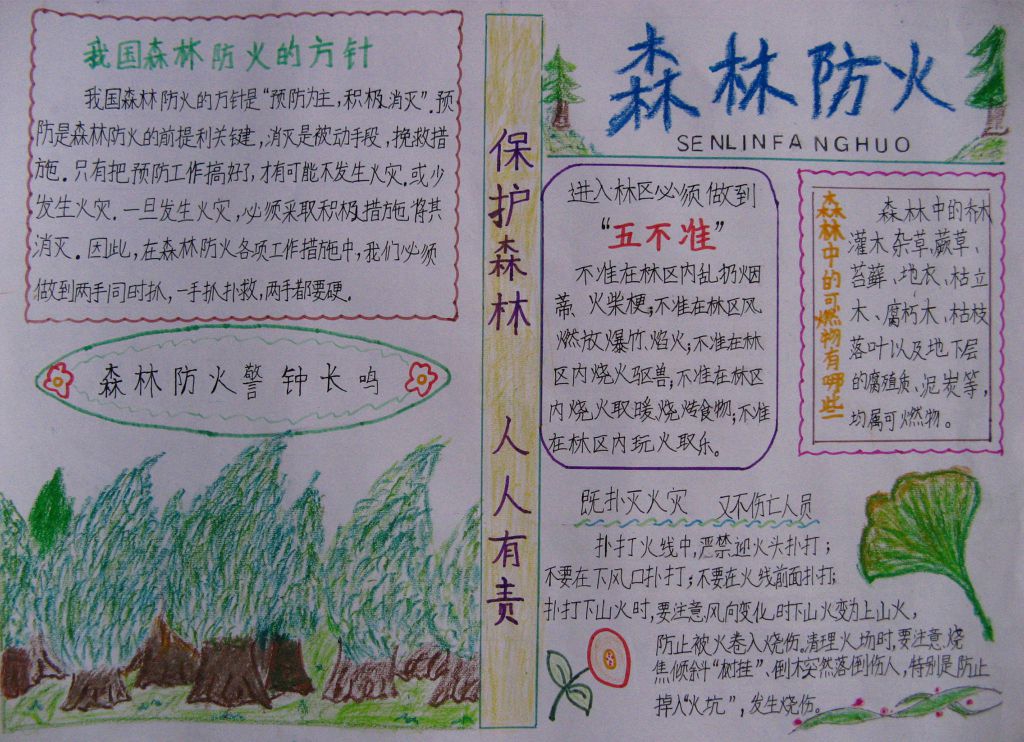 我国森林防火的方针
我国森林防火的方针是“预防为主，积极消灭”.预
防是森林防火的前提利关键，消灭是被动手段，挽救措
施．只有把预防工作搞好了，才有可能不发生火灾．或少
发生火灾．一旦发生火灾，必须采取积极措施，将其
消灭．因此，在森林防火各项工作措施中，我们必须
做到两手同时抓，一手抓扑救，两手都要硬.
森林防火警钟长鸣
保护森林 人人有责
森林防火
SENLINFANGHUO
进入林区必须做到
“五不准”
不准在林区内乱扔烟
蒂、火柴梗；不准在林区风
燃放爆竹、焰火；不准在林
区内烧火驱兽；不准在林区
内烧火取暖、烧烤食物；不准
在林区内玩火取乐。
森林中的可燃物有哪些
森林中的乔林
灌木、杂草、蕨草、
苔藓、地衣、枯立
木、腐朽木、枯枝
落叶以及地下层
的腐殖质、泥炭等，
均属可燃物。
既扑灭火灾 又不伤亡人员
扑打火线中，严禁迎火头扑打；
不要在下风口扑打；不要在火线前面扑打；
扑打下山火时，要注意风向变化，时下山火变为上山火，
防止被火卷入烧伤。清理火场时，要注意烧
焦倾斜“树挂”、倒木突然落倒伤人，特别是防止
掉入“火坑”，发生烧伤。